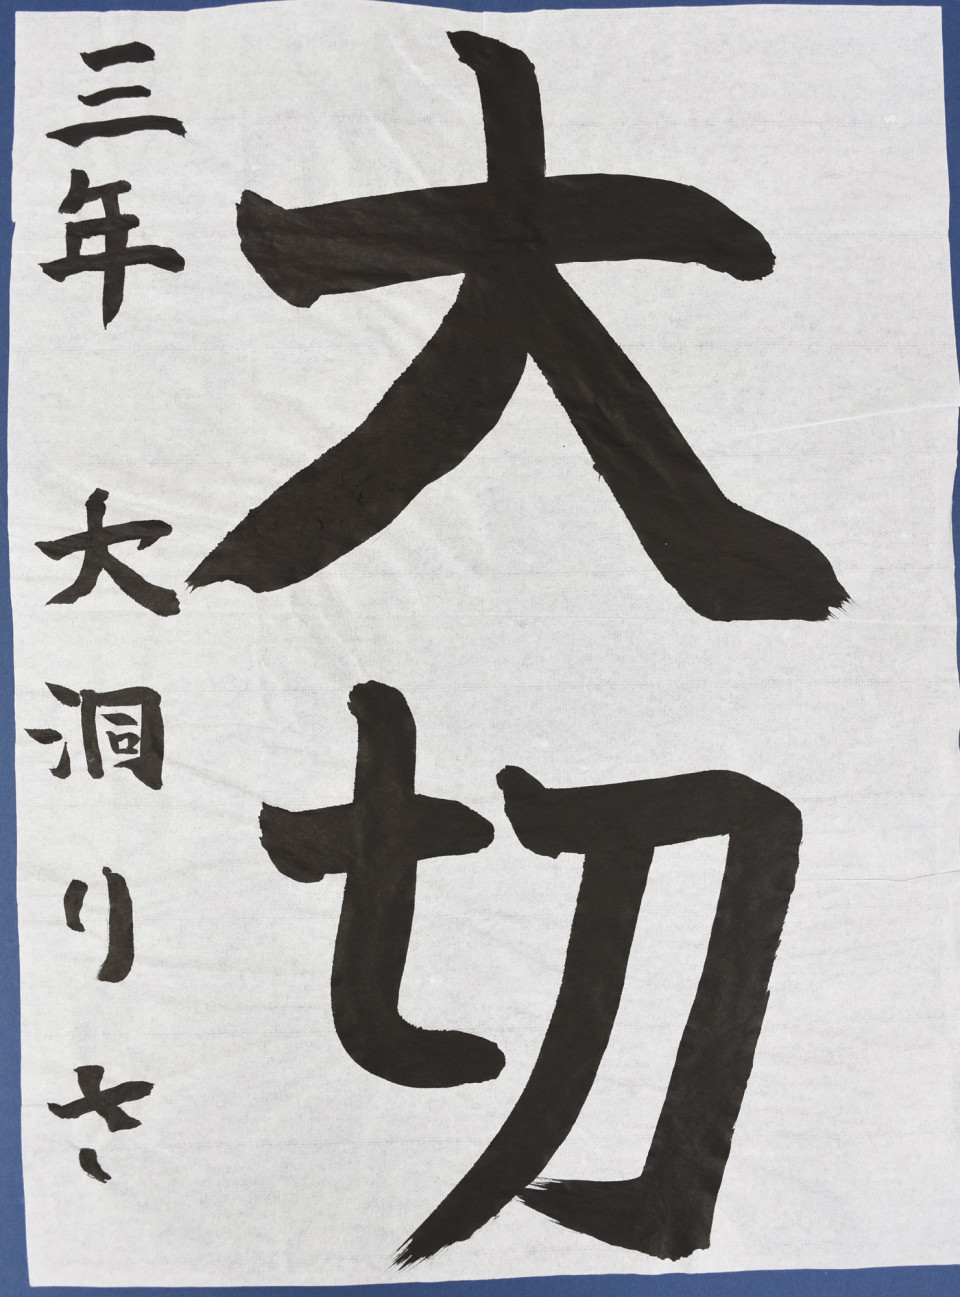 大切
三年 大洞りさ